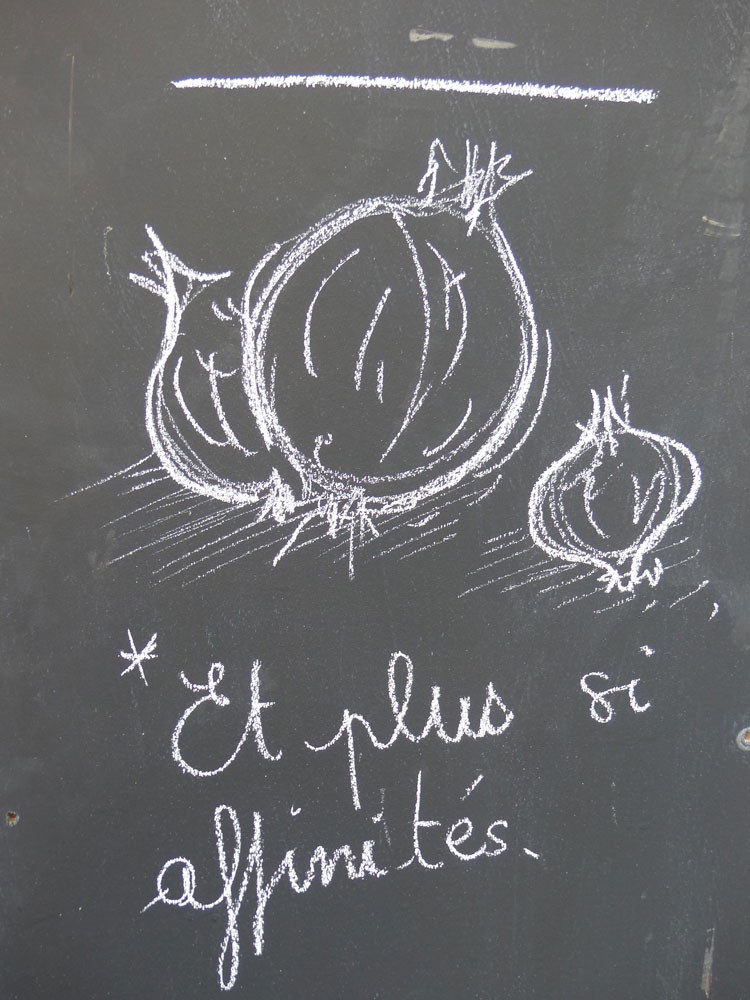 * Et plus si
affinités.